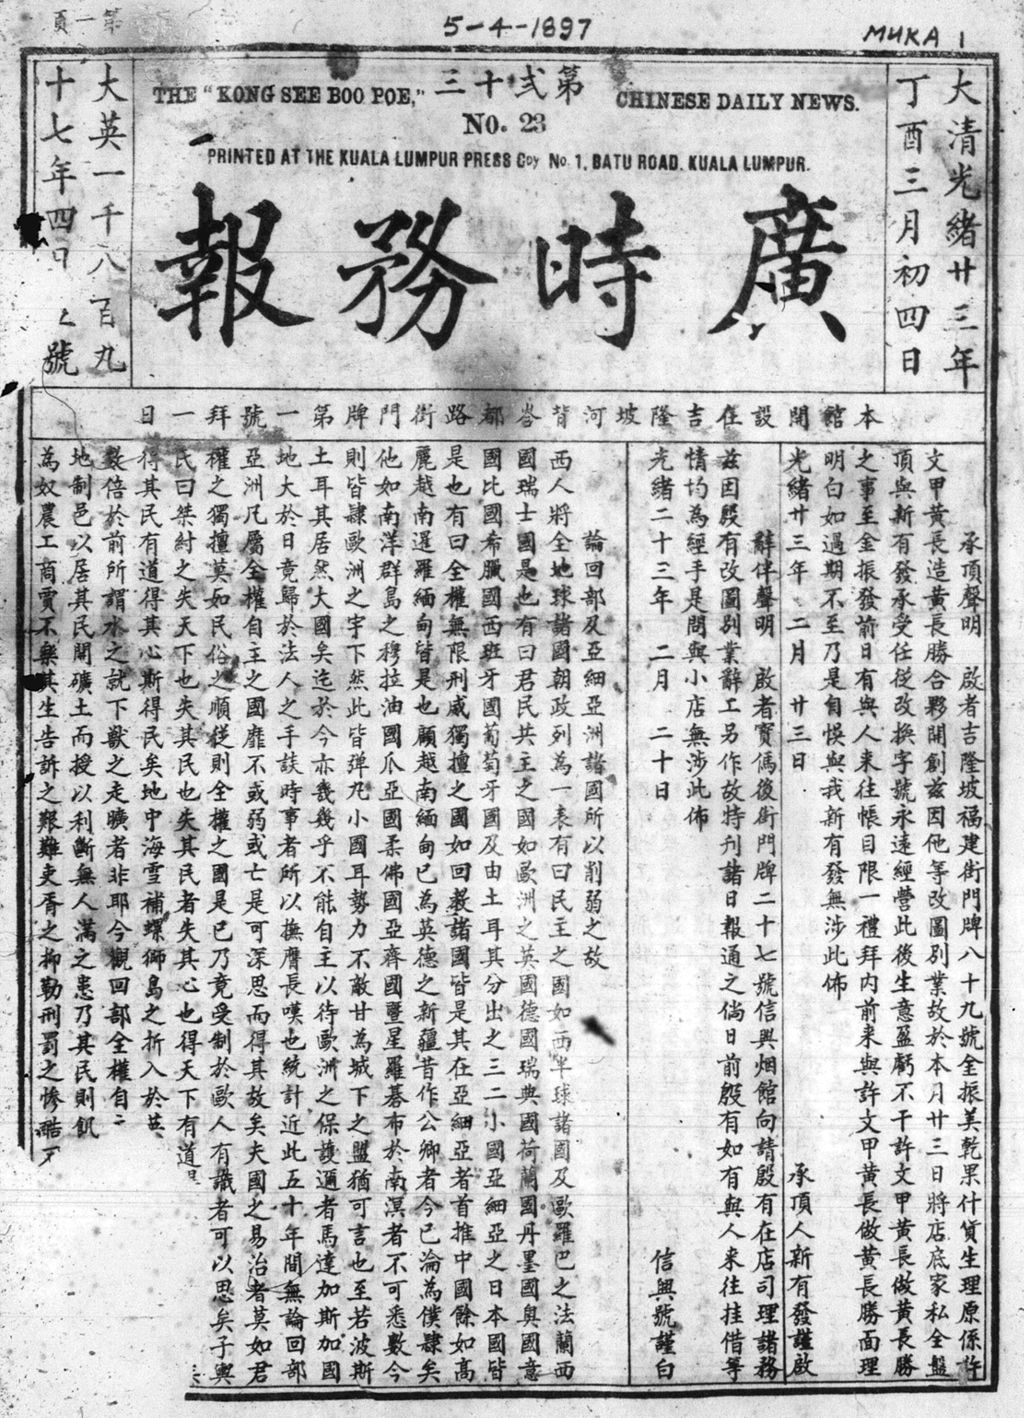 5-4-1897
MUKA 1
第一頁
大清光緒廿三年
丁酉三月初四日
第弍十三
THE "KONG SEE BOO POE,"
CHINESE DAILY NEWS.
No. 23
PRINTED AT THE KUALA LUMPUR PRESS Coy No. 1, BATU ROAD. KUALA LUMPUR.
廣時務報
大英一千八百九
十七年四日 號
本館開設在吉隆坡河背峇都路街門牌第一號 拜一日
承頂聲明 啟者吉隆坡福建街門牌八十九號金振美乾果什貨生理原係許
文甲黃長造黃長勝合夥開創茲因他等改圖別業故於本月廿三日將店底家私全盤
頂與新有發承受任從改換字號永遠經營此後生意盈虧不干許文甲黃長做黃長勝
之事至金振發前日有與人來往帳目限一禮拜內前來與許文甲黃長做黃長勝面理
明白如過期不至乃是自悞與我新有發無涉此佈
光緒廿三年 二月 廿三日 承頂人新有發謹啟
辭伴聲明 啟者寶傌後街門牌二十七號信興烟館向請殷有在店司理諸務
茲因殷有改圖別業辭工另作故特刊諸日報通之倘日前殷有如有與人來往挂借等
情均為經手是問與小店無涉此佈
光緒二十三年 二月 二十日 信興號謹白
論回部及亞細亞洲諸國所以削弱之故
西人將全地球諸國朝政列為一表有曰民主之國如西半球諸國及歐羅巴之法蘭西
國瑞士國是也有曰君民共主之國如歐洲之英國德國瑞典國荷蘭國丹墨國奧國意
國比國希臘國西班牙國葡萄牙國及由土耳其分出之三二小國亞細亞之日本國皆
是也有曰全權無限刑威獨擅之國如回教諸國皆是其在亞細亞者首推中國餘如高
麗越南暹羅緬甸皆是也顧越南緬甸已為英德之新疆昔作公卿者今已淪為僕肆矣
他如南洋群島之穆拉油國爪亞國柔佛國亞齊國暨星羅碁布於南溟者不可悉數今
則皆肄歐洲之宇下然此皆彈丸小國耳勢力不敵甘為城下之盟猶可言也至若波斯
土耳其居然大國矣迄於今亦幾幾乎不能自主以待歐洲之保護邇者馬達加斯加國
地大於日竟歸於法人之手談時事者所以撫膺長嘆也統計近此五十年間無論回部
亞洲凡屬全權自主之國靡不或弱或亡是可深思而得其故矣夫國之易治者莫如君
權之獨擅莫如民俗之順從則全權之國是已乃竟受制於歐人有識者可以思矣子輿
氏曰桀紂之失天下也失其民也失其民者失其心也得天下有道
得其民有道得其心斯得民矣地中海雪補螺鄉島之折入於英
數倍於前所謂水之就下獸之走曠者非耶今觀回部全權自
地制邑以居其民開礦土而授以利斷無人滿之患乃其民則飢
為奴農工商賈不樂其生告訴之艱難吏胥之抑勒刑罰之慘酷